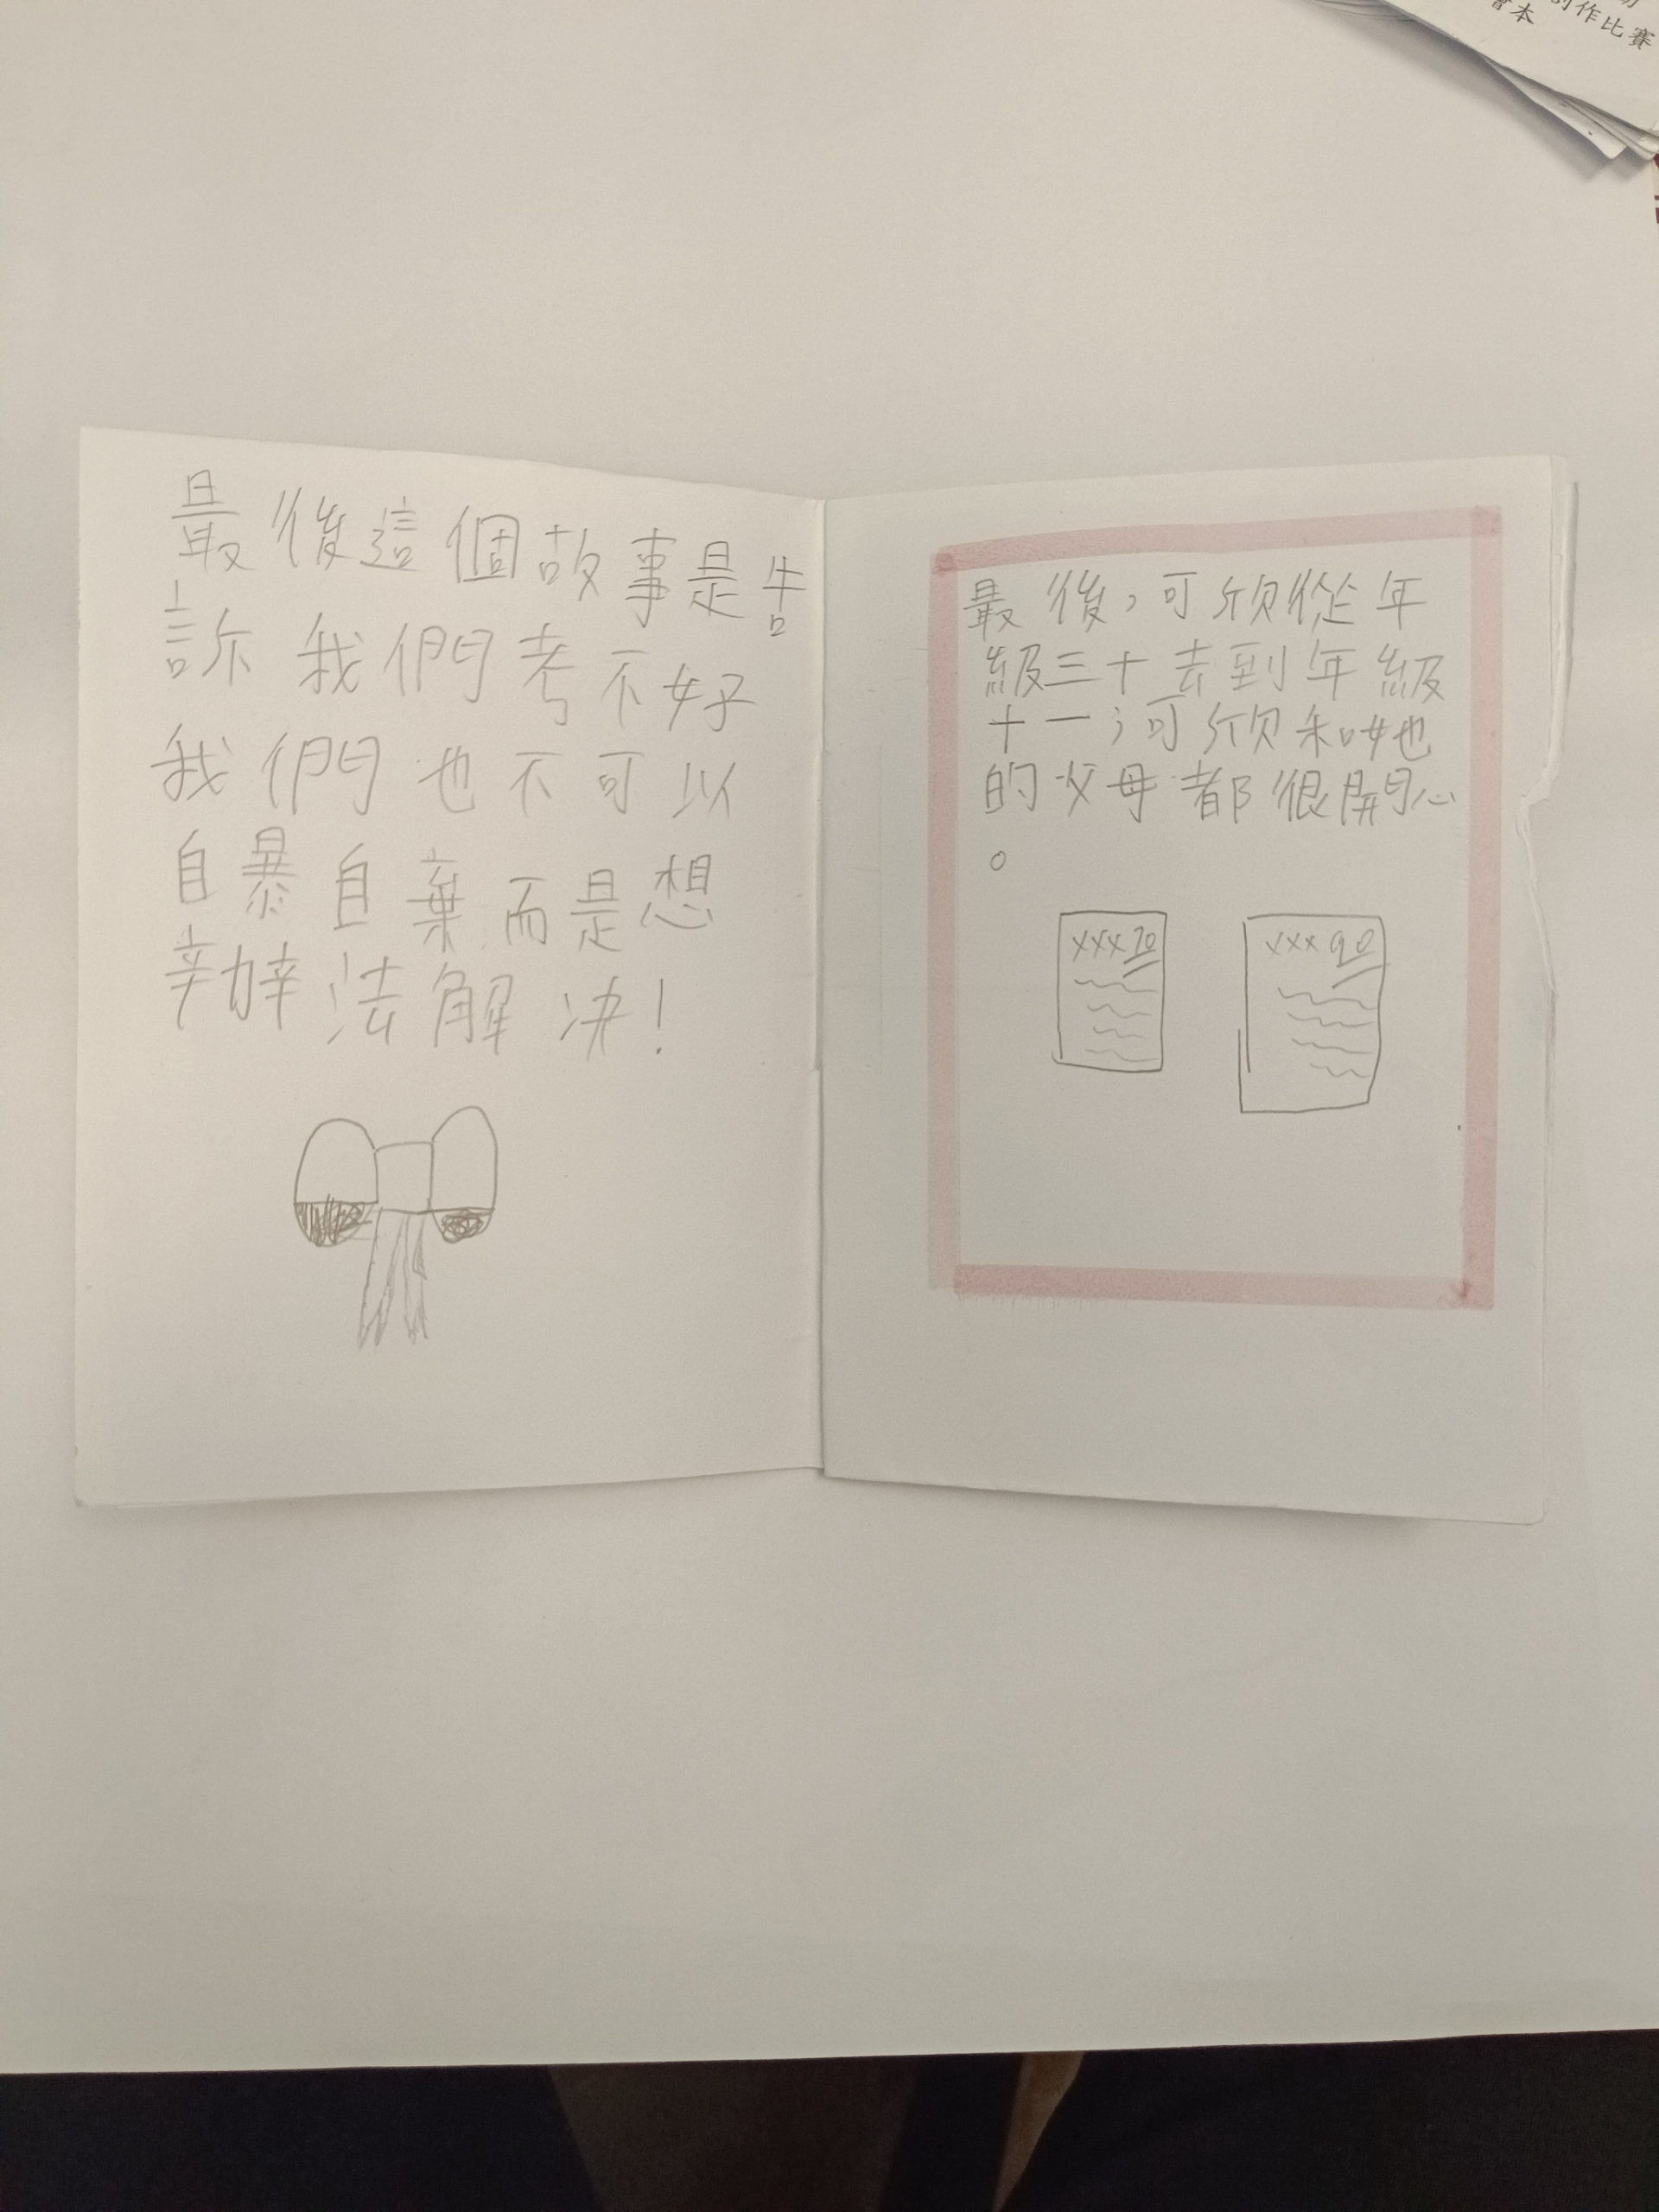 創作比賽
繪本
最後這個故事是告
訴我們考不好
我們也不可以
自暴自棄而是想
辦法解決!
最後,可欣從年
級三十去到年級
十一;可欣和她
的父母都很開心
。
xxx 70
xxx 90